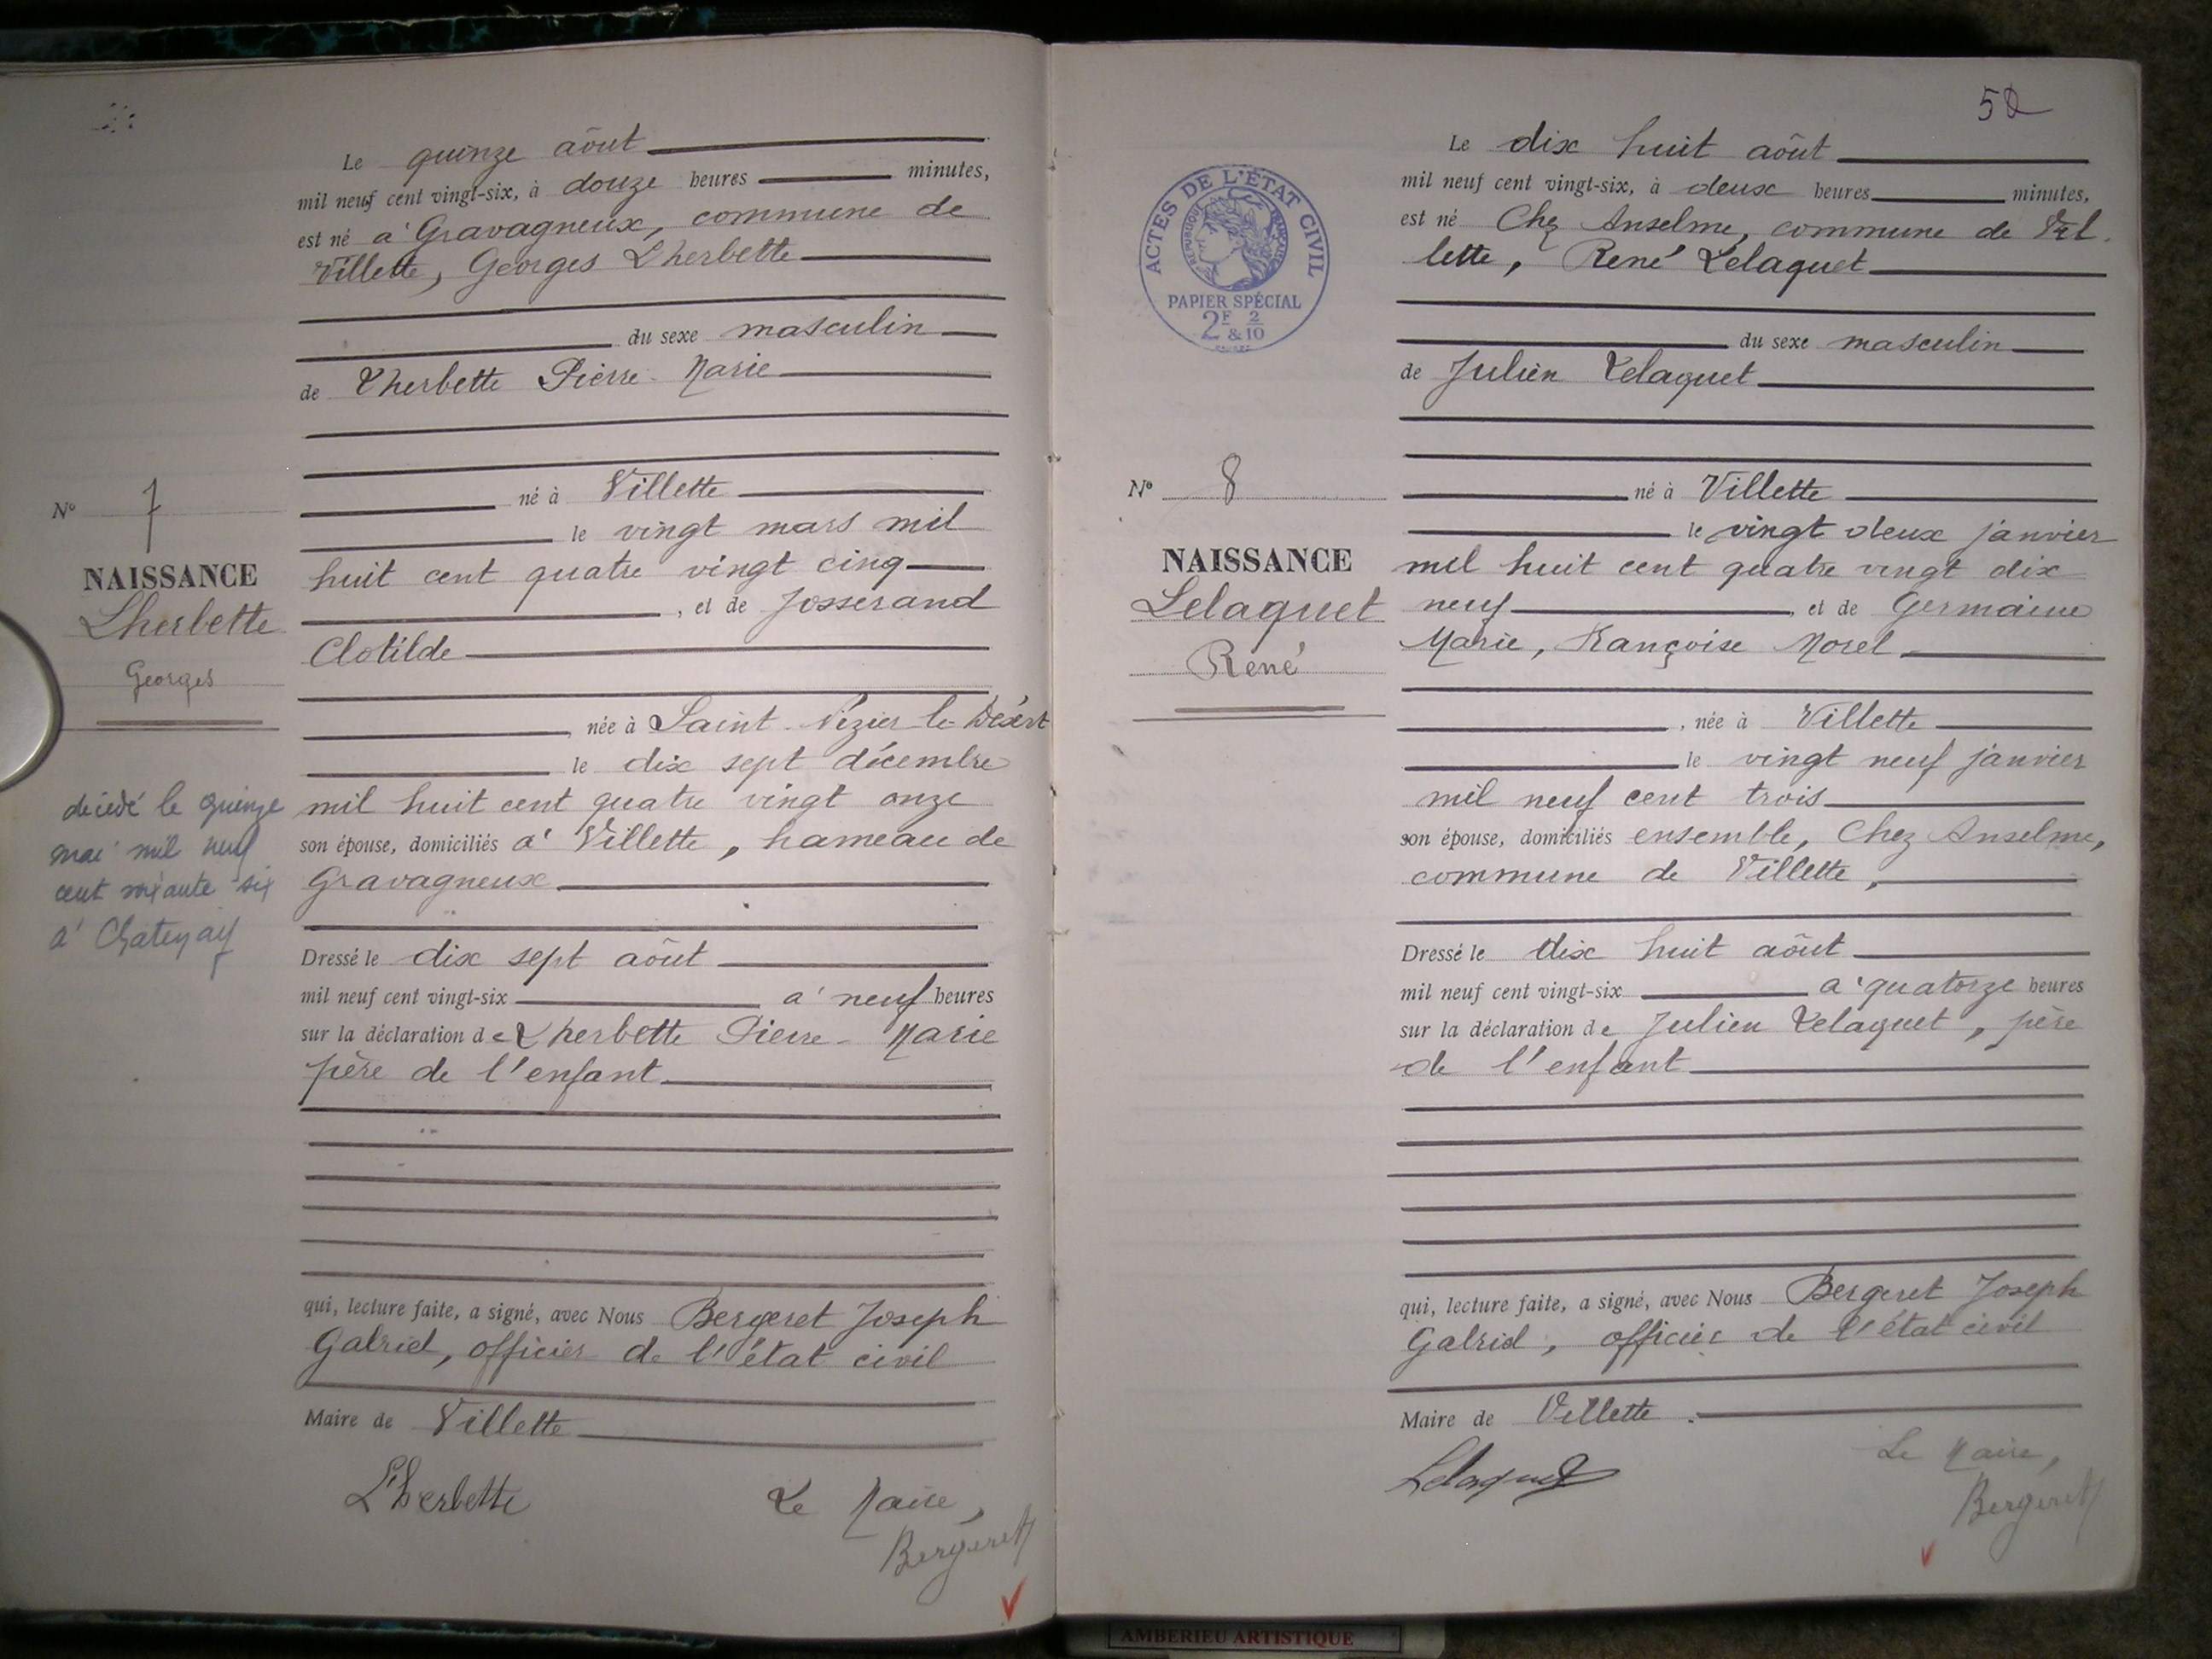 Le quinze aôut
mil neuf cent vingt-six, à douze heures minutes,
est né a' Gravagneux, commune de
Villette, Georges Lherbette
du sexe masculin
de Lherbette Pierre-Marie
né à Villette
le vingt mars mil
huit cent quatre vingt cinq
, et de Josserand
Clotilde
, née à Saint-Nizier le Désert
le dix sept décembre
mil huit cent quatre vingt onze
son épouse, domiciliés a' Villette, hameau de
Gravagneux
Dressé le dix sept aôut
mil neuf cent vingt-six a' neuf heures
sur la déclaration de Lherbette Pierre-Marie
père de l'enfant
qui, lecture faite, a signé, avec Nous Bergeret Joseph
Gabriel, officier de l'état civil
Maire de Villette
L'herbette Le Maire,
Bergeret
N° 7
NAISSANCE
Lherbette
Georges
décédé le quinze
mai mil neuf
cent soixante six
a' Chatenay
52
ACTES DE L'ÉTAT CIVIL
RÉPUBLIQUE FRANÇAISE
PAPIER SPÉCIAL
2F & 2/10
N° 8
NAISSANCE
Lelaquet
René
Le dix huit aôut
mil neuf cent vingt-six, à deux heures minutes,
est né Chez Anselme, commune de Vil
lette, René Lelaquet
du sexe masculin
de Julien Lelaquet
né à Villette
le vingt deux janvier
mil huit cent quatre vingt dix
neuf , et de Germaine
Marie, Françoise Morel
, née à Villette
le vingt neuf janvier
mil neuf cent trois
son épouse, domiciliés ensemble, Chez Anselme,
commune de Villette,
Dressé le dix huit aôut
mil neuf cent vingt-six a' quatorze heures
sur la déclaration de Julien Lelaquet, père
de l'enfant
qui, lecture faite, a signé, avec Nous Bergeret Joseph
Gabriel, officier de l'état civil
Maire de Villette.
Lelaquet Le Maire,
Bergeret
AMBERIEU ARTISTIQUE